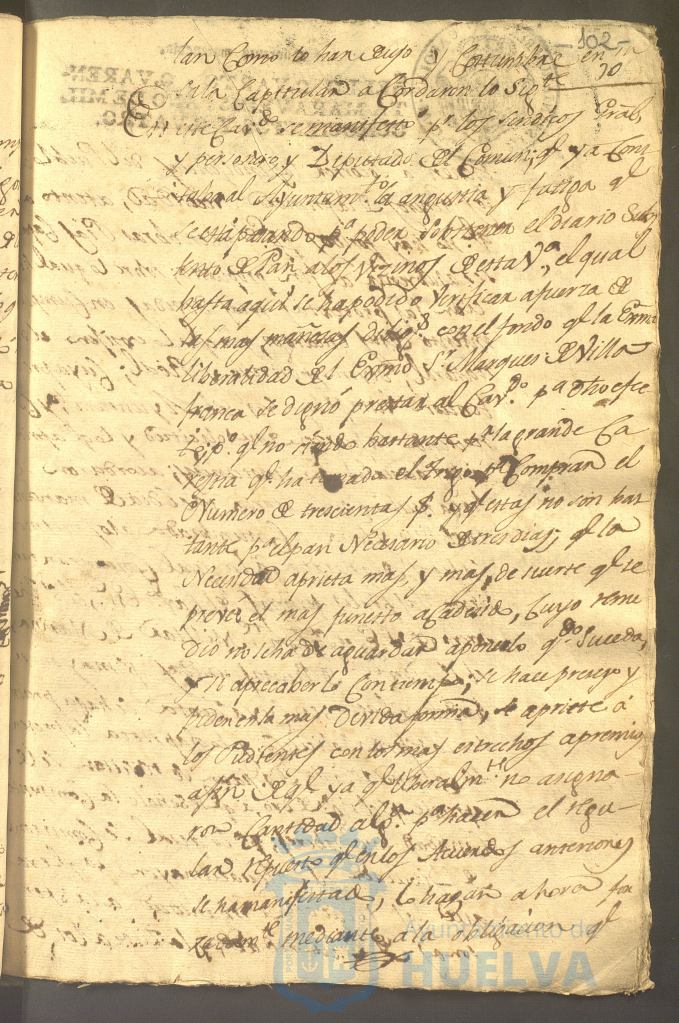 -102-
lar Como lo han de uso y Costumbre en la
30
Sala Capitular acordaron lo Sigte
En este Cavdo se manifestó pr los Sindicos Gral,
y personero, y Diputado del Comun, qe ya Cons
taba al Ayuntamto la angustia y fatiga qe
se está pasando pa poder sobstener el diario
de Pan a los Vezinos de esta Va, el qual
hasta aqui se ha podido verificar a fuerza de
las mas mañosas diligs con el fondo qe la
liberalidad del Exmo Sr Marques de Villa
franca se dignó prestar al Cavdo pa dho efec
to, po qe no siendo bastante pr la grande Ca
restia qe ha tomado el trigo pa Comprar el
Numero de trescientas fs. y qe estas no son bas
tante pa el pan Necesario de tres dias; qe la
Necesidad aprieta mas, y mas, de suerte qe se
prevee el mas funesto acaecido, Cuyo reme
dio no se ha de aguardar a ponerlo qdo Suceda,
y si a precaberlo Con tiempo; se hace preciso y
piden en la mas devida forma, se apriete á
los Pudientes con los mas estrechos apremios
a fin de qe ya qe liberalmte no asigna-
ron Cantidad alga pa hacer el regu-
lar repuesto qe en los Acuerdos anteriores
se ha manifestado, lo hagan ahora for
zadamte mediante a la obligacion qe
Ayuntamiento de
HUELVA